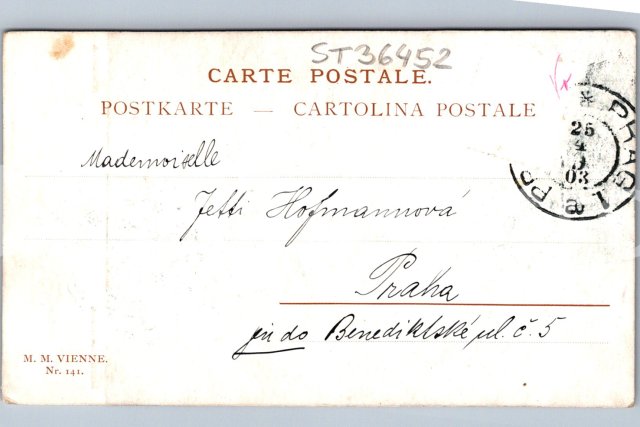 ST36452
CARTE POSTALE.
POSTKARTE — CARTOLINA POSTALE
* PRAG 1 PR
25
4
03
a
Mademoiselle
Jetti Hofmannová
Praha
do Benediktské ul. č. 5
M. M. VIENNE.
Nr. 141.